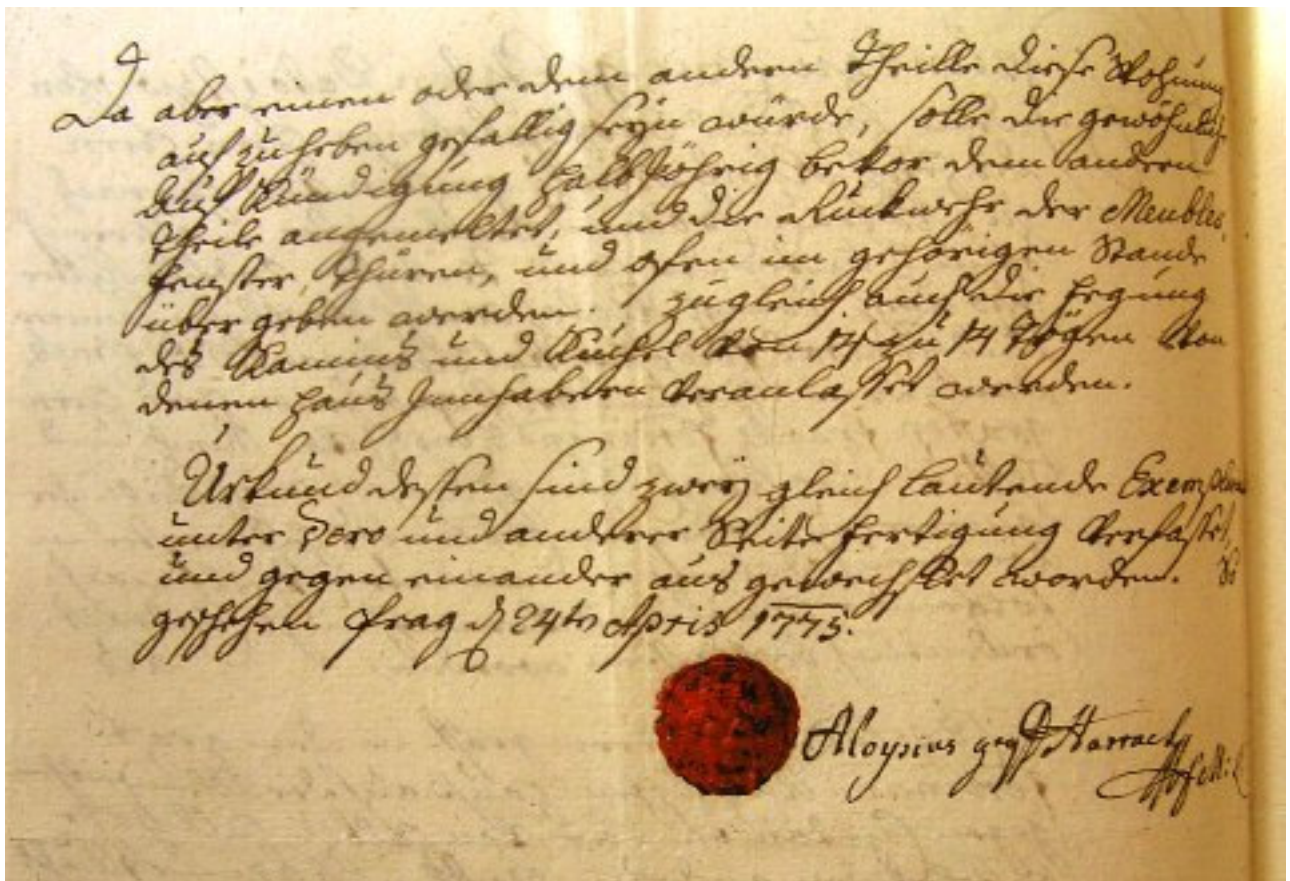 Da aber einen oder dem andern Theille diese Wohnung
aufzuheben gefällig seyn würde, solle die gewöhnliche
Aufkündigung halbjährig bevor dem andern
Theile angemeltet, und die Ruckkehr der Meubles,
fenster, Thüren, und ofen im gehörigen Stande
übergeben werden. zugleich auch die fegung
des Kamins und Kuchel von 14 zu 14 Tägen von
denen haus Innhabern veranlasset werden.
Urkund dessen sind zwey gleich lautende Exemplaria
unter Dero und anderer Seits fertigung verfasset,
und gegen einander ausgewechslet worden. So
geschehen Prag d 24ten Apris 1775.
Aloysius Harrach